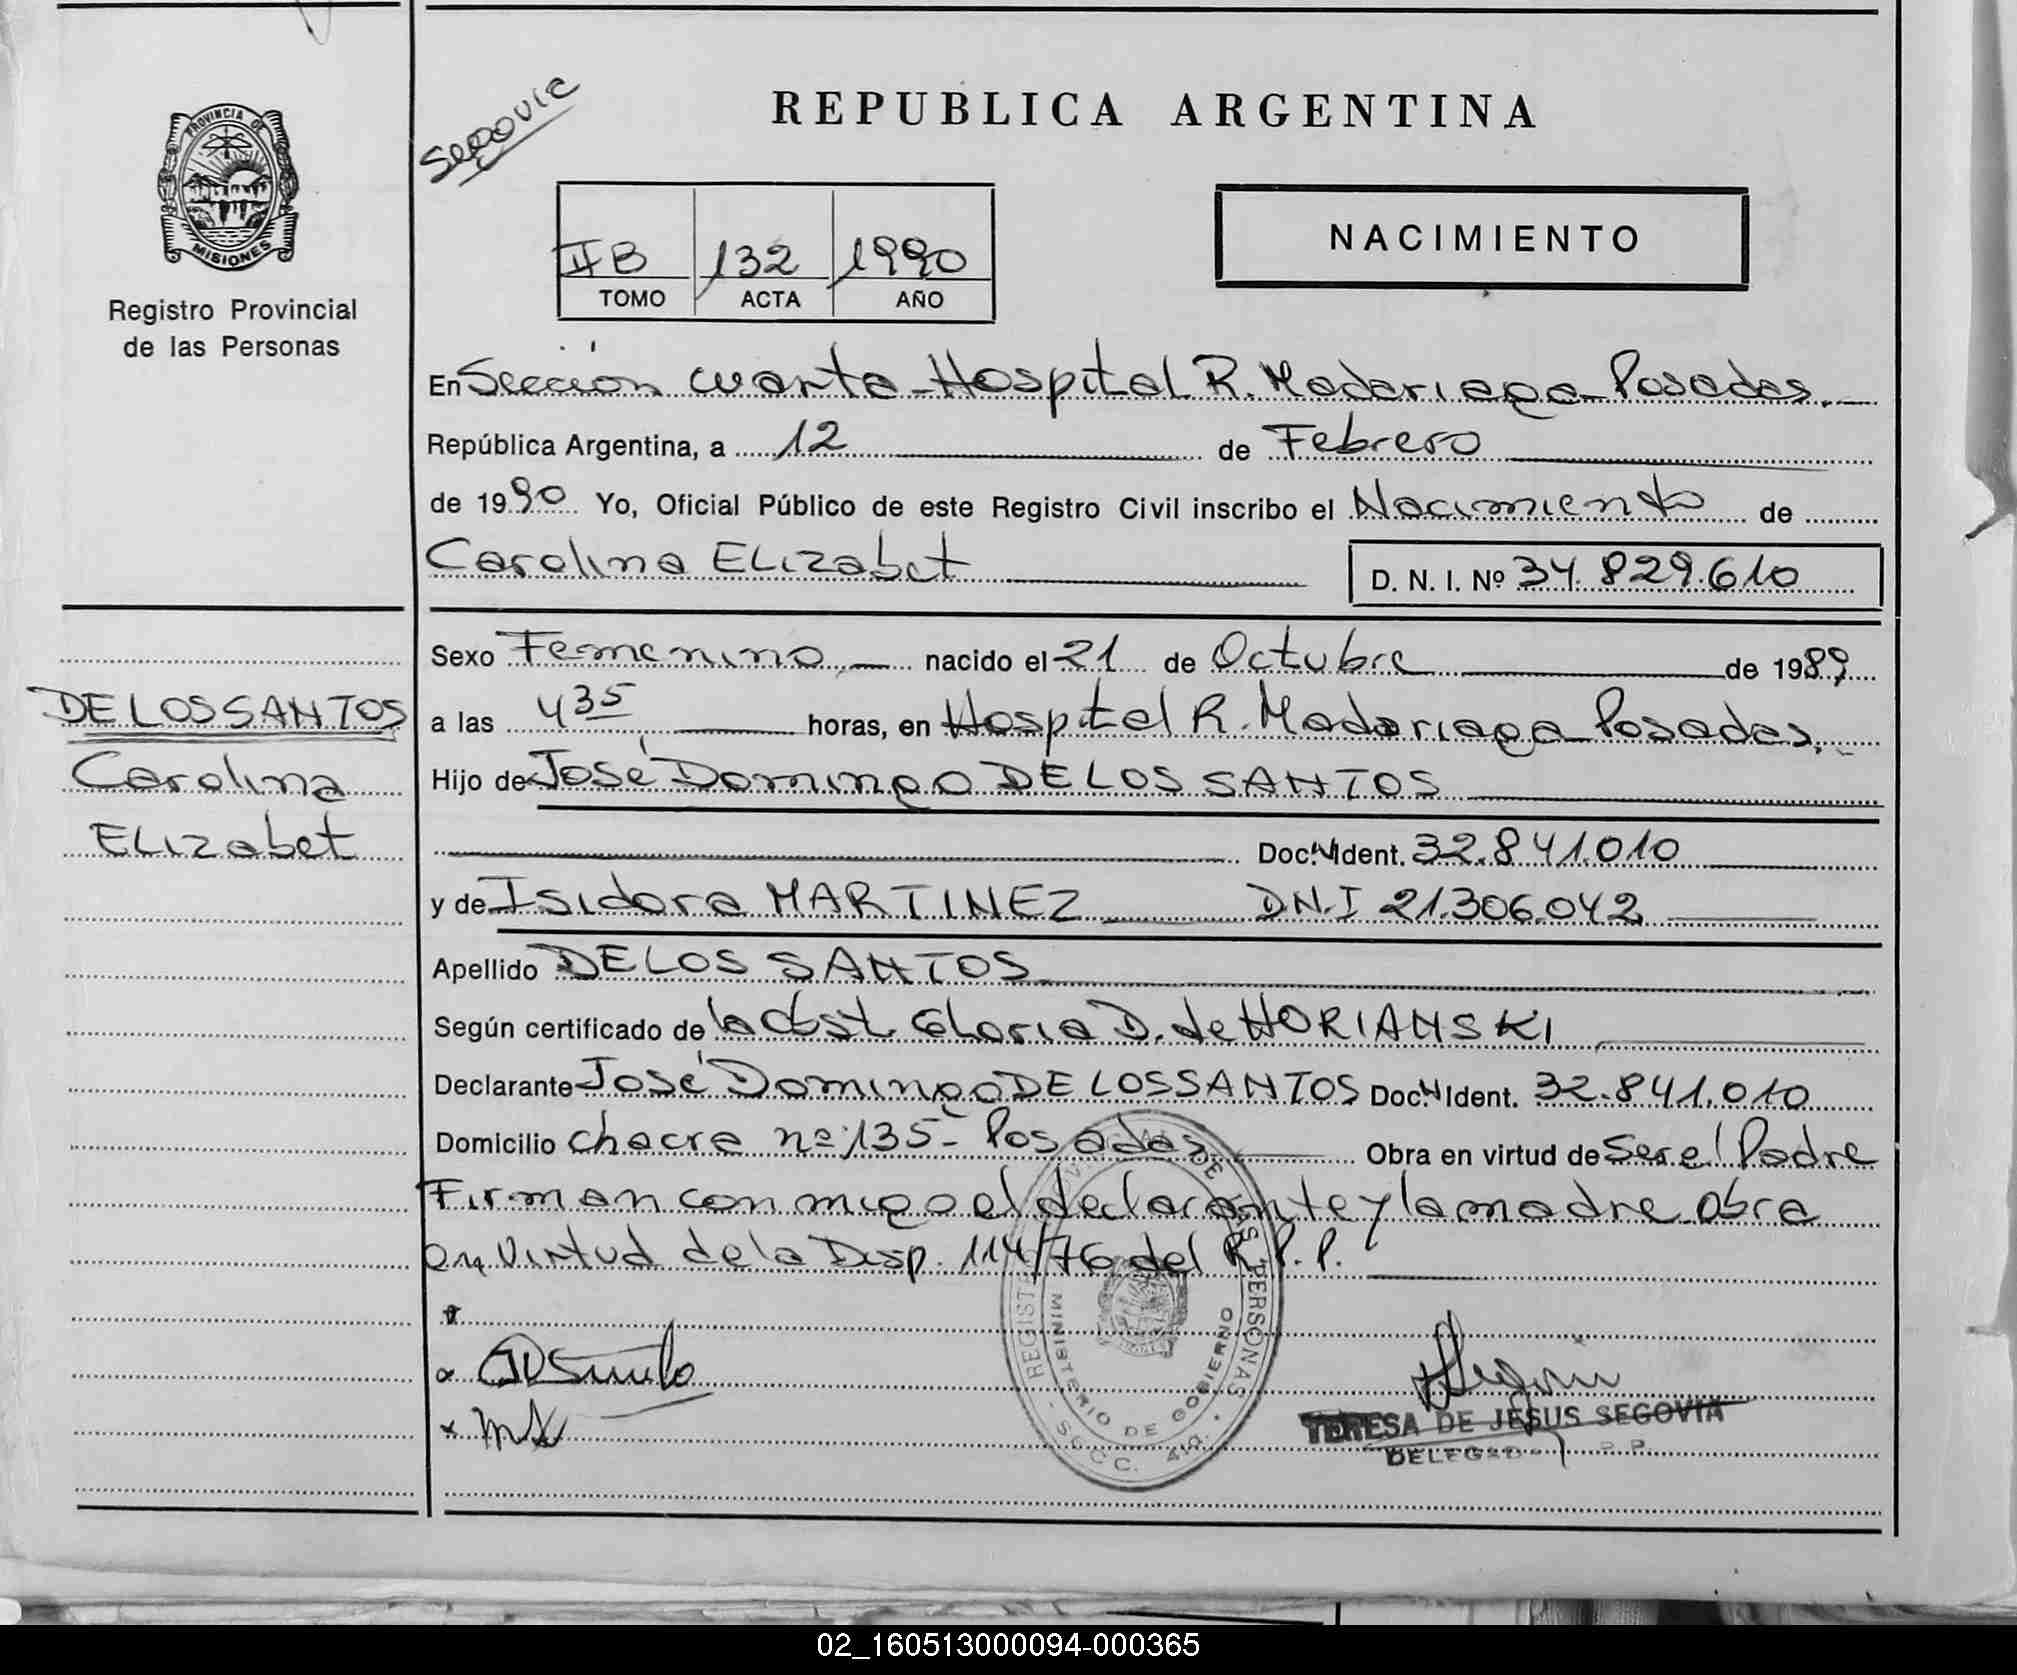 REPUBLICA ARGENTINA
PROVINCIA DE
MISIONES
Registro Provincial
de las Personas
II B 132 1990
TOMO ACTA AÑO
NACIMIENTO
En Sección cuarta - Hospital R. Madariaga - Posadas. —
República Argentina, a 12 de Febrero
de 1990 Yo, Oficial Público de este Registro Civil inscribo el Nacimiento de
Carolina ELizabet D. N. I. Nº 34.829.610
Sexo Femenino nacido el 21 de Octubre de 1989
a las 4 35 horas, en Hospital R. Madariaga - Posadas.
Hijo de José Domingo DE LOS SANTOS
Doc. N Ident. 32.841.010
y de Isidora MARTINEZ DN.I 21.306.042
Apellido DE LOS SANTOS
Según certificado de la Obst. Gloria D. de HORIANSKI
Declarante José Domingo DE LOS SANTOS Doc. N Ident. 32.841.010
Domicilio chacra nº 135 - Posadas Obra en virtud de ser el Padre
Firman conmigo el declarante y la madre obra
en virtud de la Disp. 114/76 del R.P.P.
DE LOS SANTOS
Carolina
ELizabet
REGISTRO DE LAS PERSONAS
MINISTERIO DE GOBIERNO
SECC. 4ta.
TERESA DE JESUS SEGOVIA
02_160513000094-000365